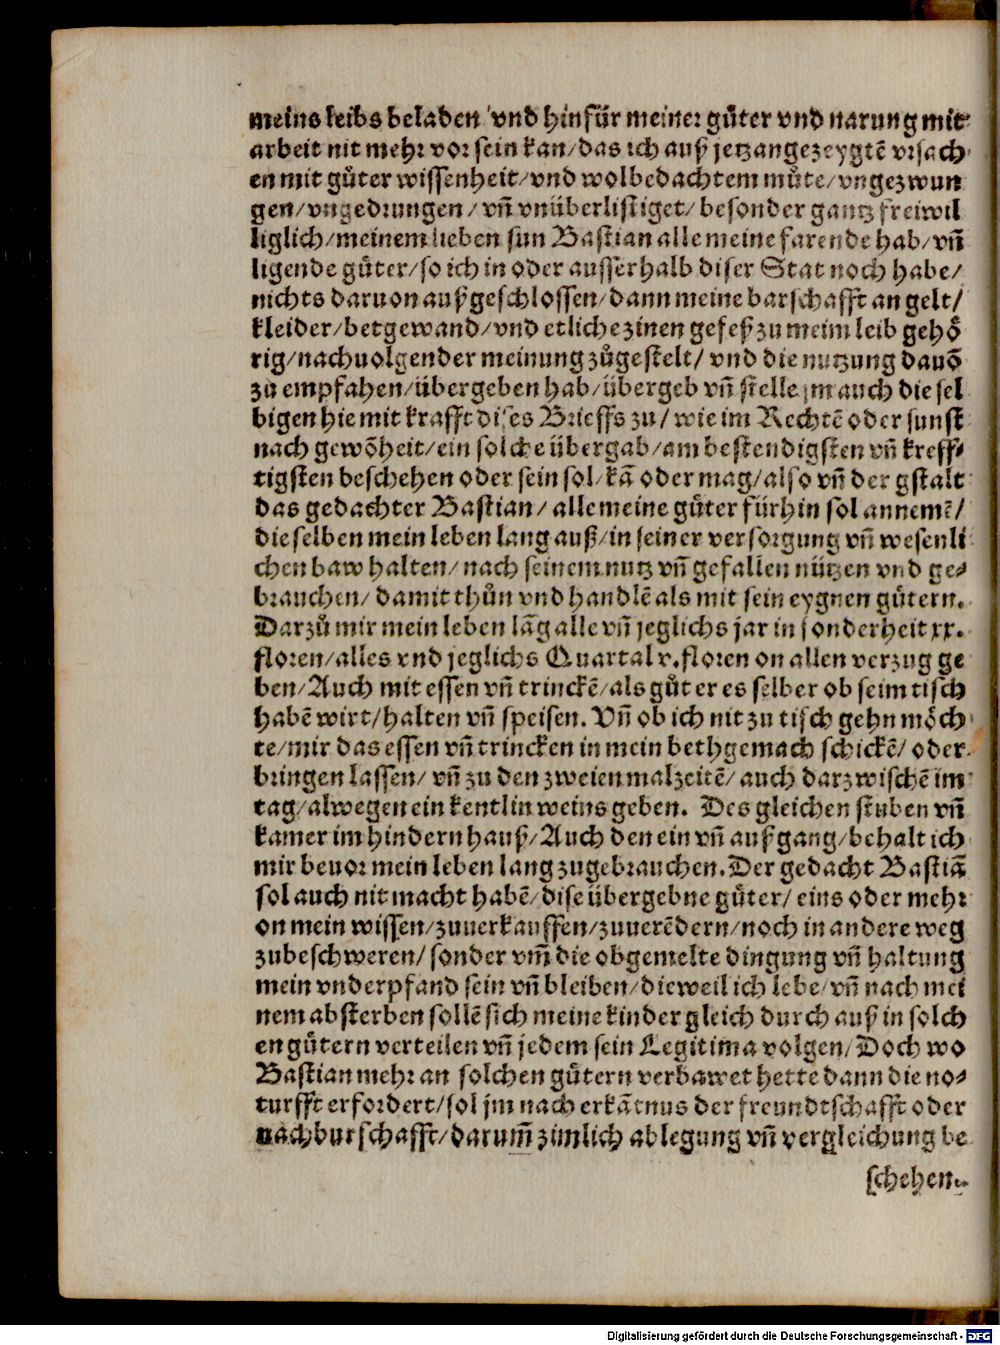 meins leibs beladen / vnd hinfür meiner gůter vnd narung mit
arbeit nit mehr vor sein kan/das ich auß jetzangezeygtē vrsach-
en mit gůter wissenheit/vnd wolbedachtem můte/vngezwun
gen/vngedrungen/vñ vnüberlistiget/besonder gantz freiwil
liglich/meinem lieben sun Bastian alle meine farende hab/vñ
ligende gůter/so ich in oder ausserhalb diser Stat noch habe/
nichts daruon außgeschlossen/dann meine barschafft an gelt/
kleider/betgewand/vnd etliche zinen gefeß zu meim leib gehö
rig/nachuolgender meinung zůgestelt/vnd die nutzung dauõ
zů empfahen/übergeben hab/übergeb vñ stelle jm auch die sel
bigen hie mit krafft dises Brieffs zu/wie im Rechtē oder sunst
nach gewõheit/ein solche übergab/am bestendigsten vñ kreff-
tigsten beschehen oder sein sol/kã oder mag/also vñ der gstalt
das gedachter Bastian/alle meine gůter fürhin sol annemē/
die selben mein leben lang auß/in seiner versorgung vñ wesenli
chen baw halten/nach seinem nutz vñ gefallen nützen vnd ge-
brauchen/damit thůn vnd handlē als mit sein eygnen gůtern.
Darzů mir mein leben lãg alle vñ jeglichs jar in sonderheit xx.
floren/alles vnd jeglichs Quartal v.floren on allen verzug ge
ben/Auch mit essen vñ trinckē/als gůt er es selber ob seim tisch
habē wirt/halten vñ speisen. Vñ ob ich nit zu tisch gehn möch
te/mir das essen vñ trincken in mein bethgemach schickē/oder
bringen lassen/vñ zu den zweien malzeitē/auch darzwischē im
tag/alwegen ein kentlin weins geben. Des gleichen stuben vñ
kamer im hindern hauß/Auch den ein vñ außgang/behalt ich
mir beuor mein leben lang zugebrauchen. Der gedacht Bastiã
sol auch nit macht habē/dise übergebne gůter/eins oder mehr
on mein wissen/zuuerkauffen/zuuerēdern/noch in andere weg
zubeschweren/sonder vm̃ die obgemelte dingung vñ haltung
mein vnderpfand sein vñ bleiben/dieweil ich lebe/vñ nach mei
nem absterben sollē sich meine kinder gleich durch auß in solch
en gůtern verteilen vñ jedem sein Legitima volgen/Doch wo
Bastian mehr an solchen gůtern verbawet hette dann die no-
turfft erfordert/sol jm nach erkãtnus der freundtschafft oder
nachburschafft/darum̃ zimlich ablegung vñ vergleichung be
schehen.
Digitalisierung gefördert durch die Deutsche Forschungsgemeinschaft - DFG